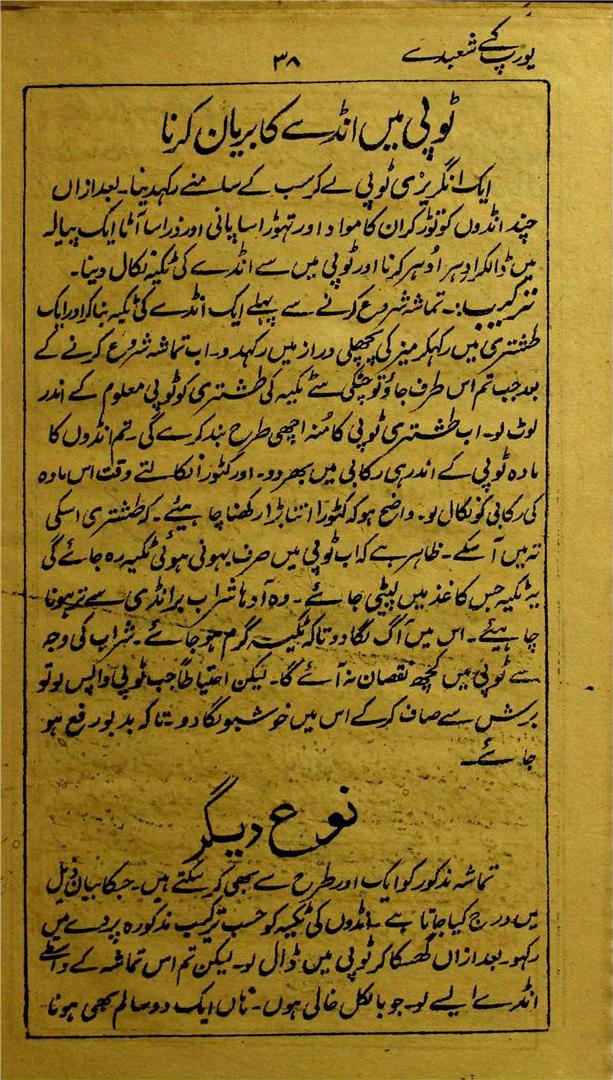 یورپ کے شعبدے
۳۸
ٹوپی میں انڈے کا بریان کرنا
ایک انگریزی ٹوپی لے کر سب کے سامنے رکھدینا۔ بعد ازاں
چند انڈوں کو توڑ کر ان کا مواد اور تہوڑا سا پانی اور ذرا سا آٹا ایک پیالہ
میں ڈالکر ادہر اُدہر کرنا اور ٹوپی میں سے انڈے کی ٹکیہ نکال دینا۔
ترکیب:۔ تماشہ شروع کرنے سے پہلے ایک انڈے کی ٹکیہ بنا کر اور ایک
طشتری میں رکھکر میز کی پچھلی دراز میں رکھدو۔ اب تماشہ شروع کرنے کے
بعد جب تم اس طرف جاؤ تو چٹکی سے ٹکیہ کی طشتری کو ٹوپی معلوم کے اندر
لوٹ لو۔ اب طشتری ٹوپی کا مُنہ اچھی طرح بند کرے گی۔ تم انڈوں کا
مادہ ٹوپی کے اندر ہی رکابی میں بھر دو۔ اور کٹورا نکالتے وقت اس مادہ
کی رکابی کو نکال لو۔ واضح ہو کہ کٹورا اتنا بڑا رکھنا چاہیئے۔ کہ طشتری اسکی
تہ میں آ سکے۔ ظاہر ہے کہ اب ٹوپی میں صرف بہونی ہوئی ٹکیہ رہ جائے گی
یہ ٹکیہ جس کاغذ میں لپیٹی جائے۔ وہ آدہا شراب برانڈی سے تر ہونا
چاہیئے۔ اس میں آگ لگا دو تاکہ ٹکیہ گرم ہو جائے۔ شراب کی وجہ
سے ٹوپی میں کچھ نقصان نہ آئے گا۔ لیکن احتیاطاً جب ٹوپی واپس لو تو
برش سے صاف کر کے اس میں خوشبو لگا دو۔ تاکہ بدبو رفع ہو
جائے۔
نوع دیگر
تماشہ مذکور کو ایک اور طرح سے بھی کر سکتے ہیں۔ جسکا بیان ذیل
میں درج کیا جاتا ہے۔ انڈوں کی ٹکیہ کو حسب ترکیب مذکورہ پردے میں
رکہو۔ بعد ازاں گھسکا کر ٹوپی میں ڈال لو۔ لیکن تم اس تماشہ کے واسطے
انڈے ایسے لو۔ جو بالکل خالی ہوں۔ ہاں ایک دو سالم بھی ہونا